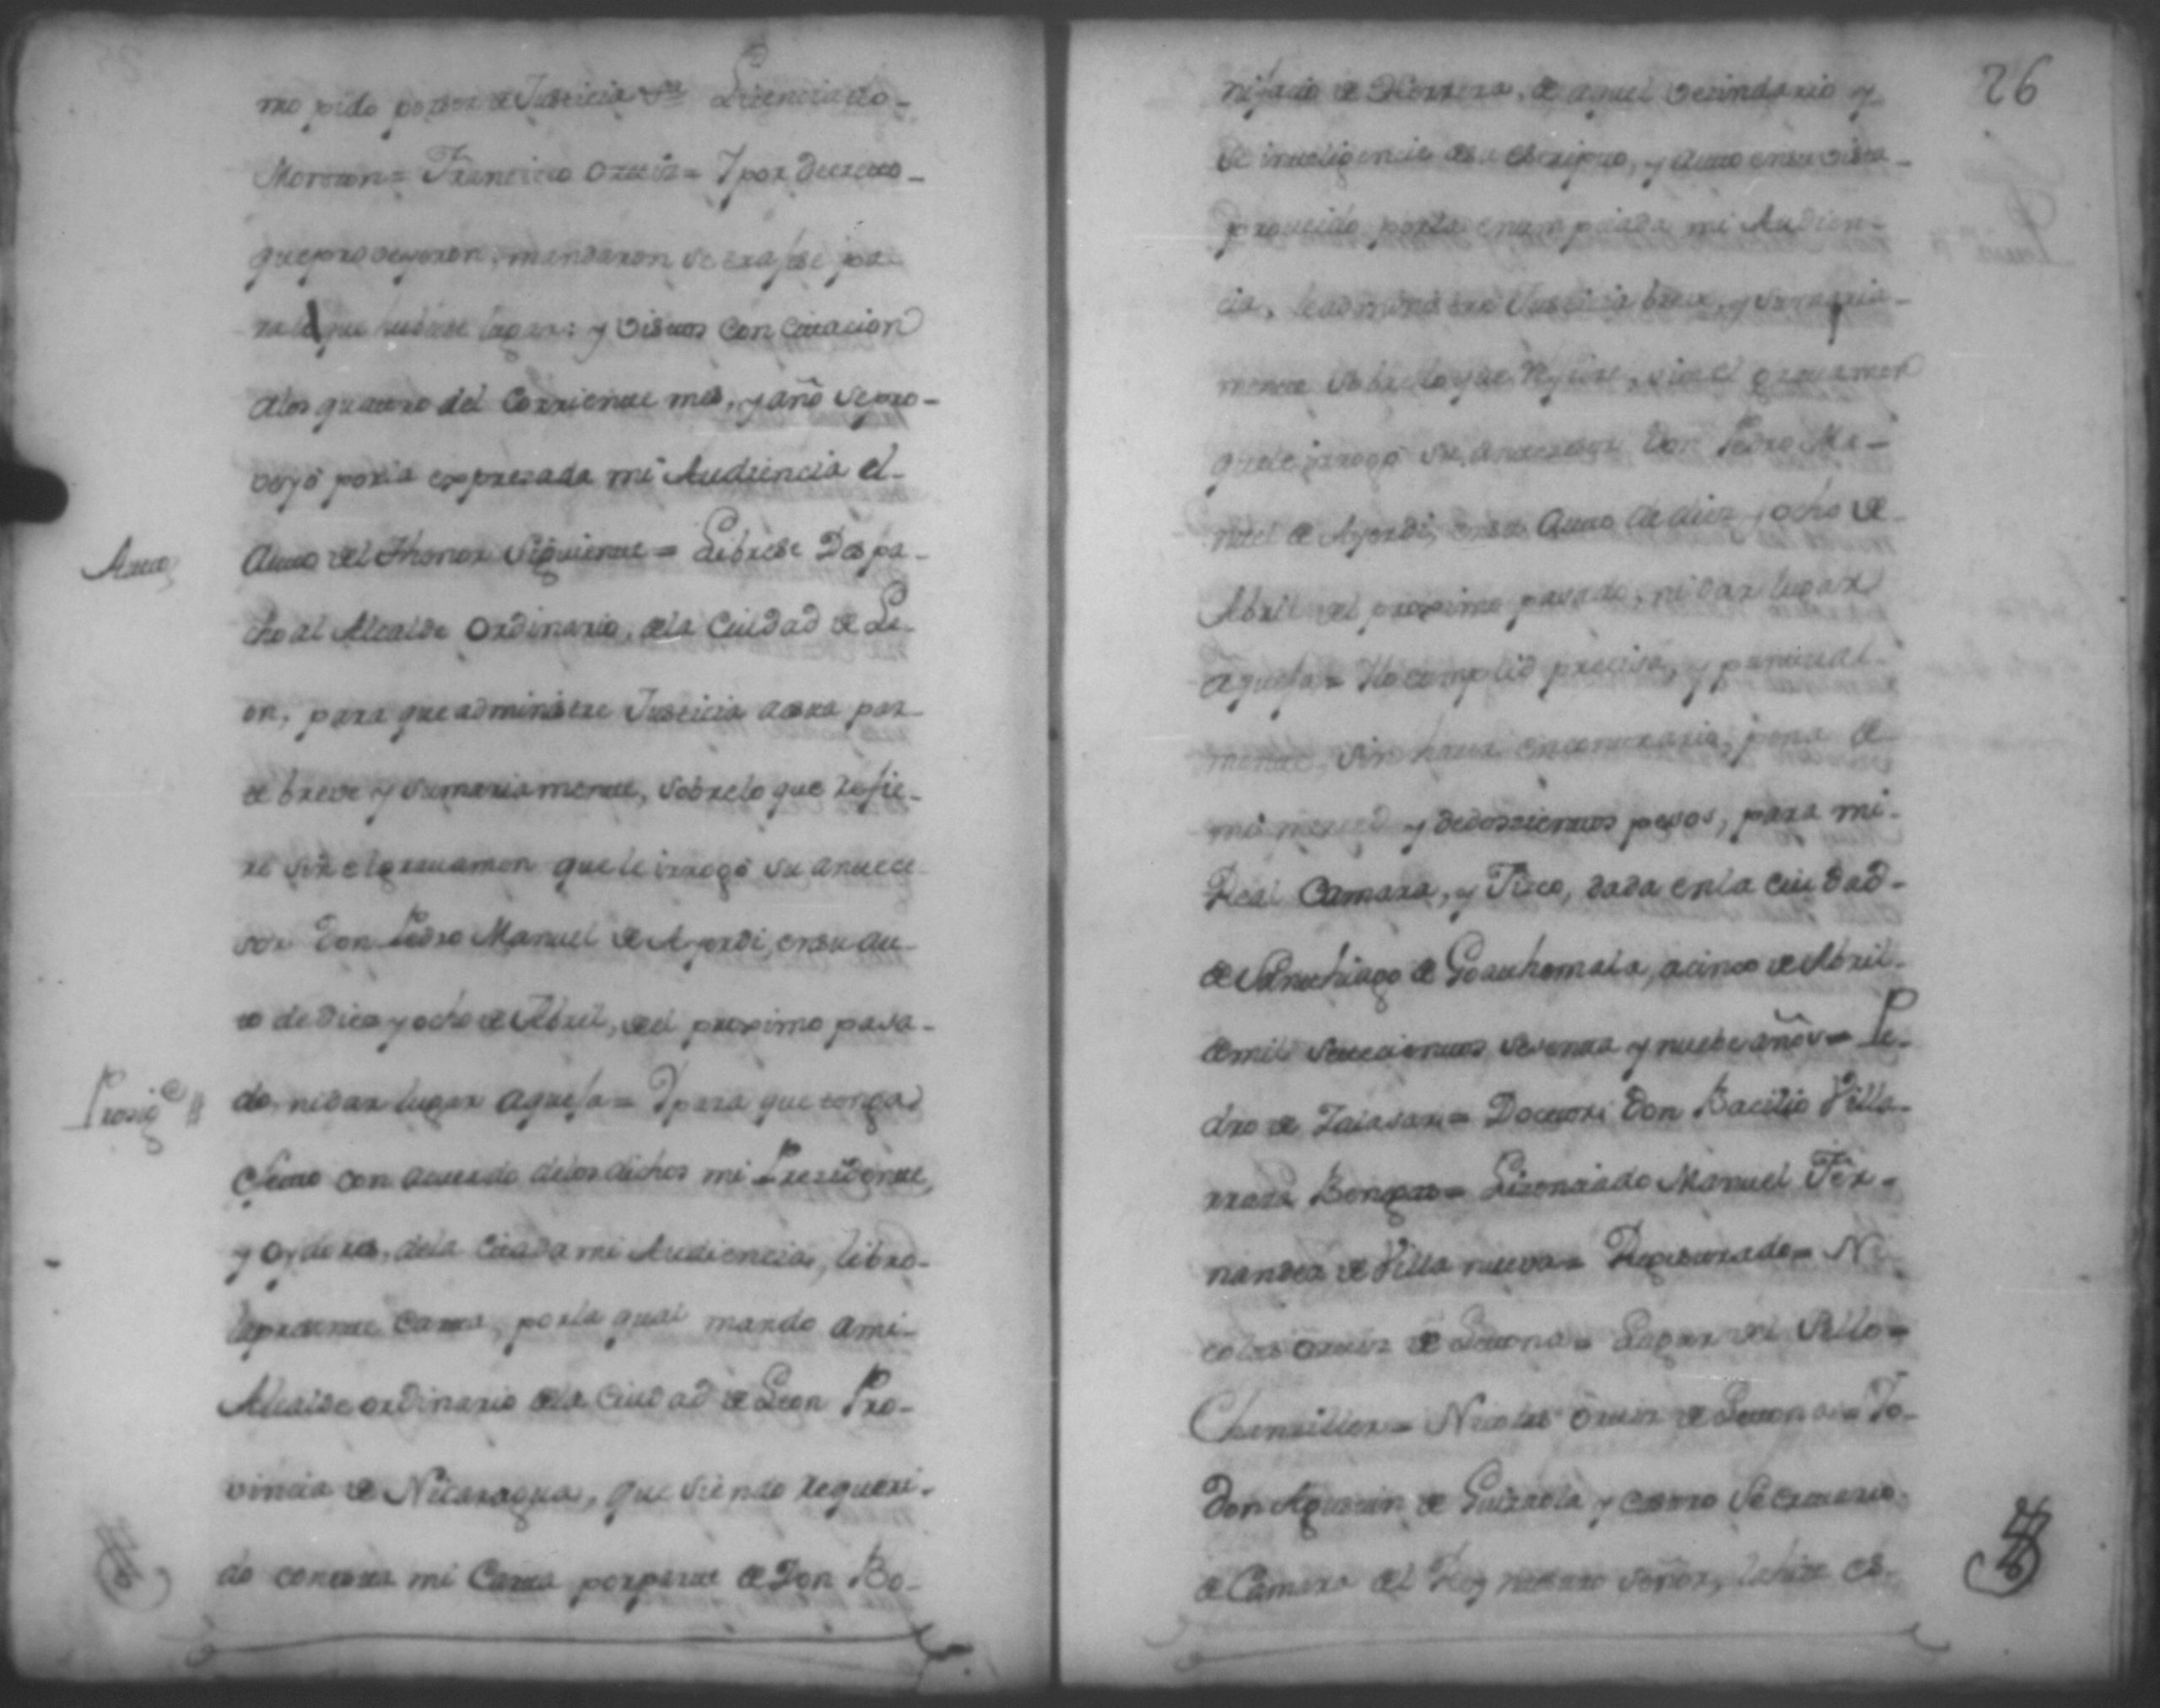 mo pido por ser de Justicia &ra Licenciado
Moreron = Francisco Ortiz = Y por decreto
que proveyeron, mandaron se traxese pa-
ra lo que hubiese lugar: y vistos con citacion
a los quatro del corriente mes, y año se pro-
veyó por la expresada mi Audiencia el
Auto
auto del thenor siguiente = Librese Despa-
cho al Alcalde ordinario, de la Ciudad de Le-
on, para que administre Justicia a esta par-
te breve y sumariamente, sobre lo que refie-
re sin el gravamen que le irrogó su antece-
sor Don Pedro Manuel de Ayerdi, en su au-
to de diez y ocho de Abril, del proximo pasa-
Prosige
do, ni dar lugar a quexa = Y para que tenga
efecto con acuerdo de los dichos mi Prezidente,
y oydores, de la citada mi Audiencia, libro
la presente Carta, por la qual mando a mi
Alcalde ordinario de la Ciudad de Leon Pro-
vincia de Nicaragua, que siendo requeri-
do con esta mi Carta por parte de Don Bo-
26
nifacio de Herrera, de aquel vecindario y
de inteligencia de su escripto, y auto en su vista
proveido por la enunpciada mi Audien-
cia, le administre Justicia breve, y sumaria-
mente sobre lo que refiere, sin el gravamen
que le irrogó su antecesor Don Pedro Ma-
nuel de Ayerdi, en su auto de diez y ocho de
Abril del proximo pasado, ni dar lugar
a quexa = Y lo cumplid precisa, y puntual-
mente, sin hacer en contrario, pena de
mi merced y de doscientos pesos, para mi
Real Camara, y Fisco, dada en la ciudad
de Santhiago de Goauthemala, a cinco de Abril
de mil setecientos sesenta y nuebe años = Pe-
dro de Zalasar = Doctor Don Bacilio Villa-
rrasa Bengas = Lizenciado Manuel Fer-
nandez de Villa nueva = Registrado = Ni-
colas Ortiz de Letona = Lugar del Sello =
Chanziller = Nicolas Ortiz de Letona = Yo
Don Agustin de Guirola y Castro Secretario
de Camara del Rey nuestro señor, la hize es-